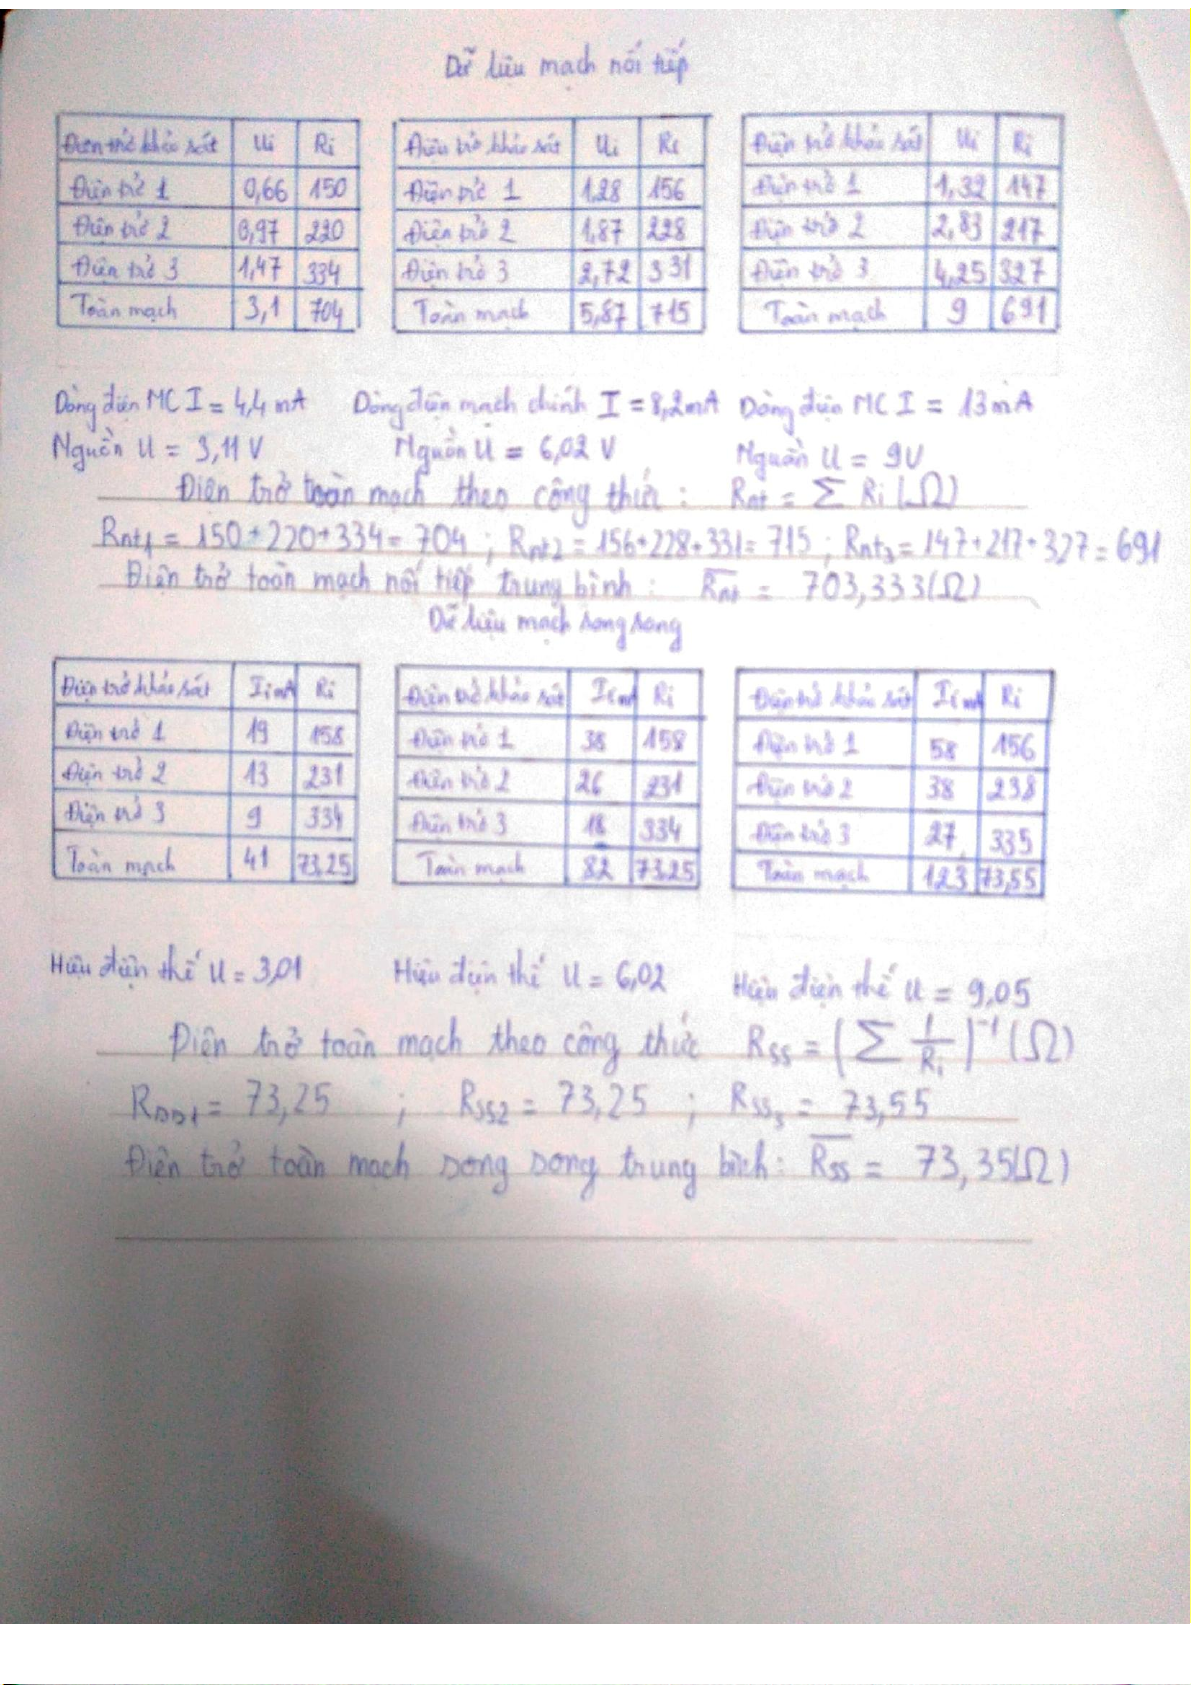 Dữ liệu mạch nối tiếp
Điện trở khảo sát Ui Ri
Điện trở 1 0,66 150
Điện trở 2 0,97 220
Điện trở 3 1,47 334
Toàn mạch 3,1 704
Điện trở khảo sát Ui Ri
Điện trở 1 1,28 156
Điện trở 2 1,87 228
Điện trở 3 2,72 331
Toàn mạch 5,87 715
Điện trở khảo sát Ui Ri
Điện trở 1 1,92 147
Điện trở 2 2,83 217
Điện trở 3 4,25 327
Toàn mạch 9 691
Dòng điện MC I = 4,4 mA Dòng điện mạch chính I = 8,2mA Dòng điện MC I = 13 mA
Nguồn U = 3,11 V Nguồn U = 6,02 V Nguồn U = 9V
Điện trở toàn mạch theo công thức : Rnt = Σ Ri (Ω)
Rnt1 = 150+220+334= 704 ; Rnt2 = 156+228+331= 715 ; Rnt3 = 147+217+327 = 691
Điện trở toàn mạch nối tiếp trung bình : R̅nt = 703,333(Ω)
Dữ liệu mạch song song
Điện trở khảo sát Ii mA Ri
Điện trở 1 19 158
Điện trở 2 13 231
Điện trở 3 9 334
Toàn mạch 41 73,25
Điện trở khảo sát Ii mA Ri
Điện trở 1 38 158
Điện trở 2 26 231
Điện trở 3 18 334
Toàn mạch 82 73,25
Điện trở khảo sát Ii mA Ri
Điện trở 1 58 156
Điện trở 2 38 238
Điện trở 3 27 335
Toàn mạch 123 73,55
Hiệu điện thế U = 3,01 Hiệu điện thế U = 6,02 Hiệu điện thế U = 9,05
Điện trở toàn mạch theo công thức Rss = (Σ 1/Ri)⁻¹ (Ω)
Rss1 = 73,25 ; Rss2 = 73,25 ; Rss3 = 73,55
Điện trở toàn mạch song song trung bình : R̅ss = 73,35(Ω)